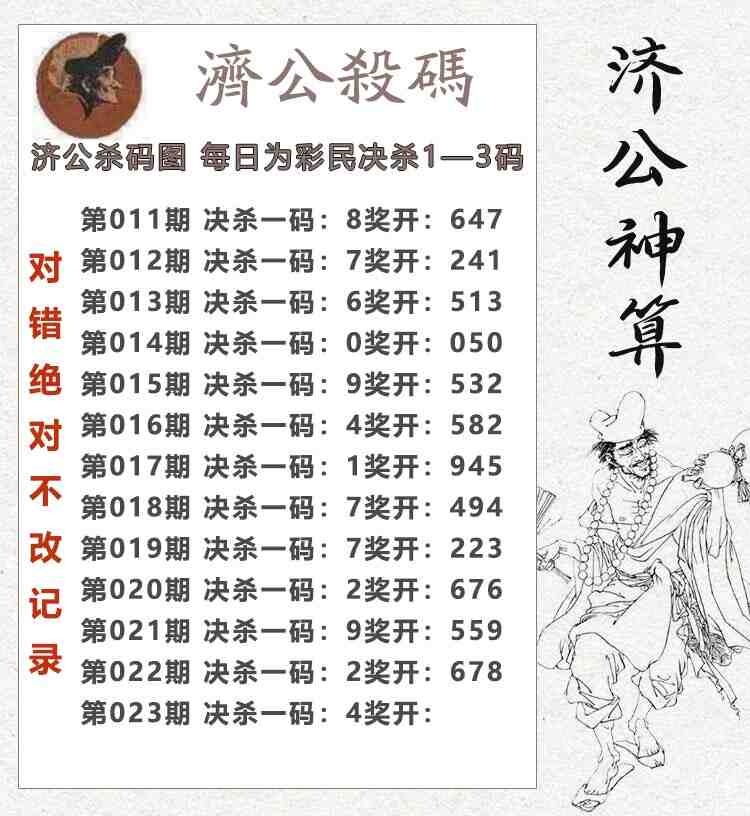 濟公殺碼
济公杀码图 每日为彩民决杀1—3码
第011期 决杀一码：8奖开：647
第012期 决杀一码：7奖开：241
第013期 决杀一码：6奖开：513
第014期 决杀一码：0奖开：050
第015期 决杀一码：9奖开：532
第016期 决杀一码：4奖开：582
第017期 决杀一码：1奖开：945
第018期 决杀一码：7奖开：494
第019期 决杀一码：7奖开：223
第020期 决杀一码：2奖开：676
第021期 决杀一码：9奖开：559
第022期 决杀一码：2奖开：678
第023期 决杀一码：4奖开：
对错绝对不改记录
济公神算